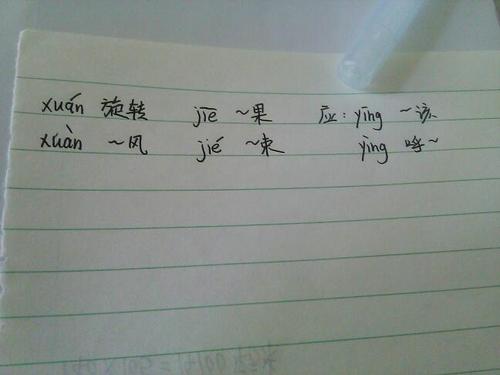 xuán 旋转 jiē ~果 应: yīng ~该
xuàn ~风 jié ~束 yìng 呼~